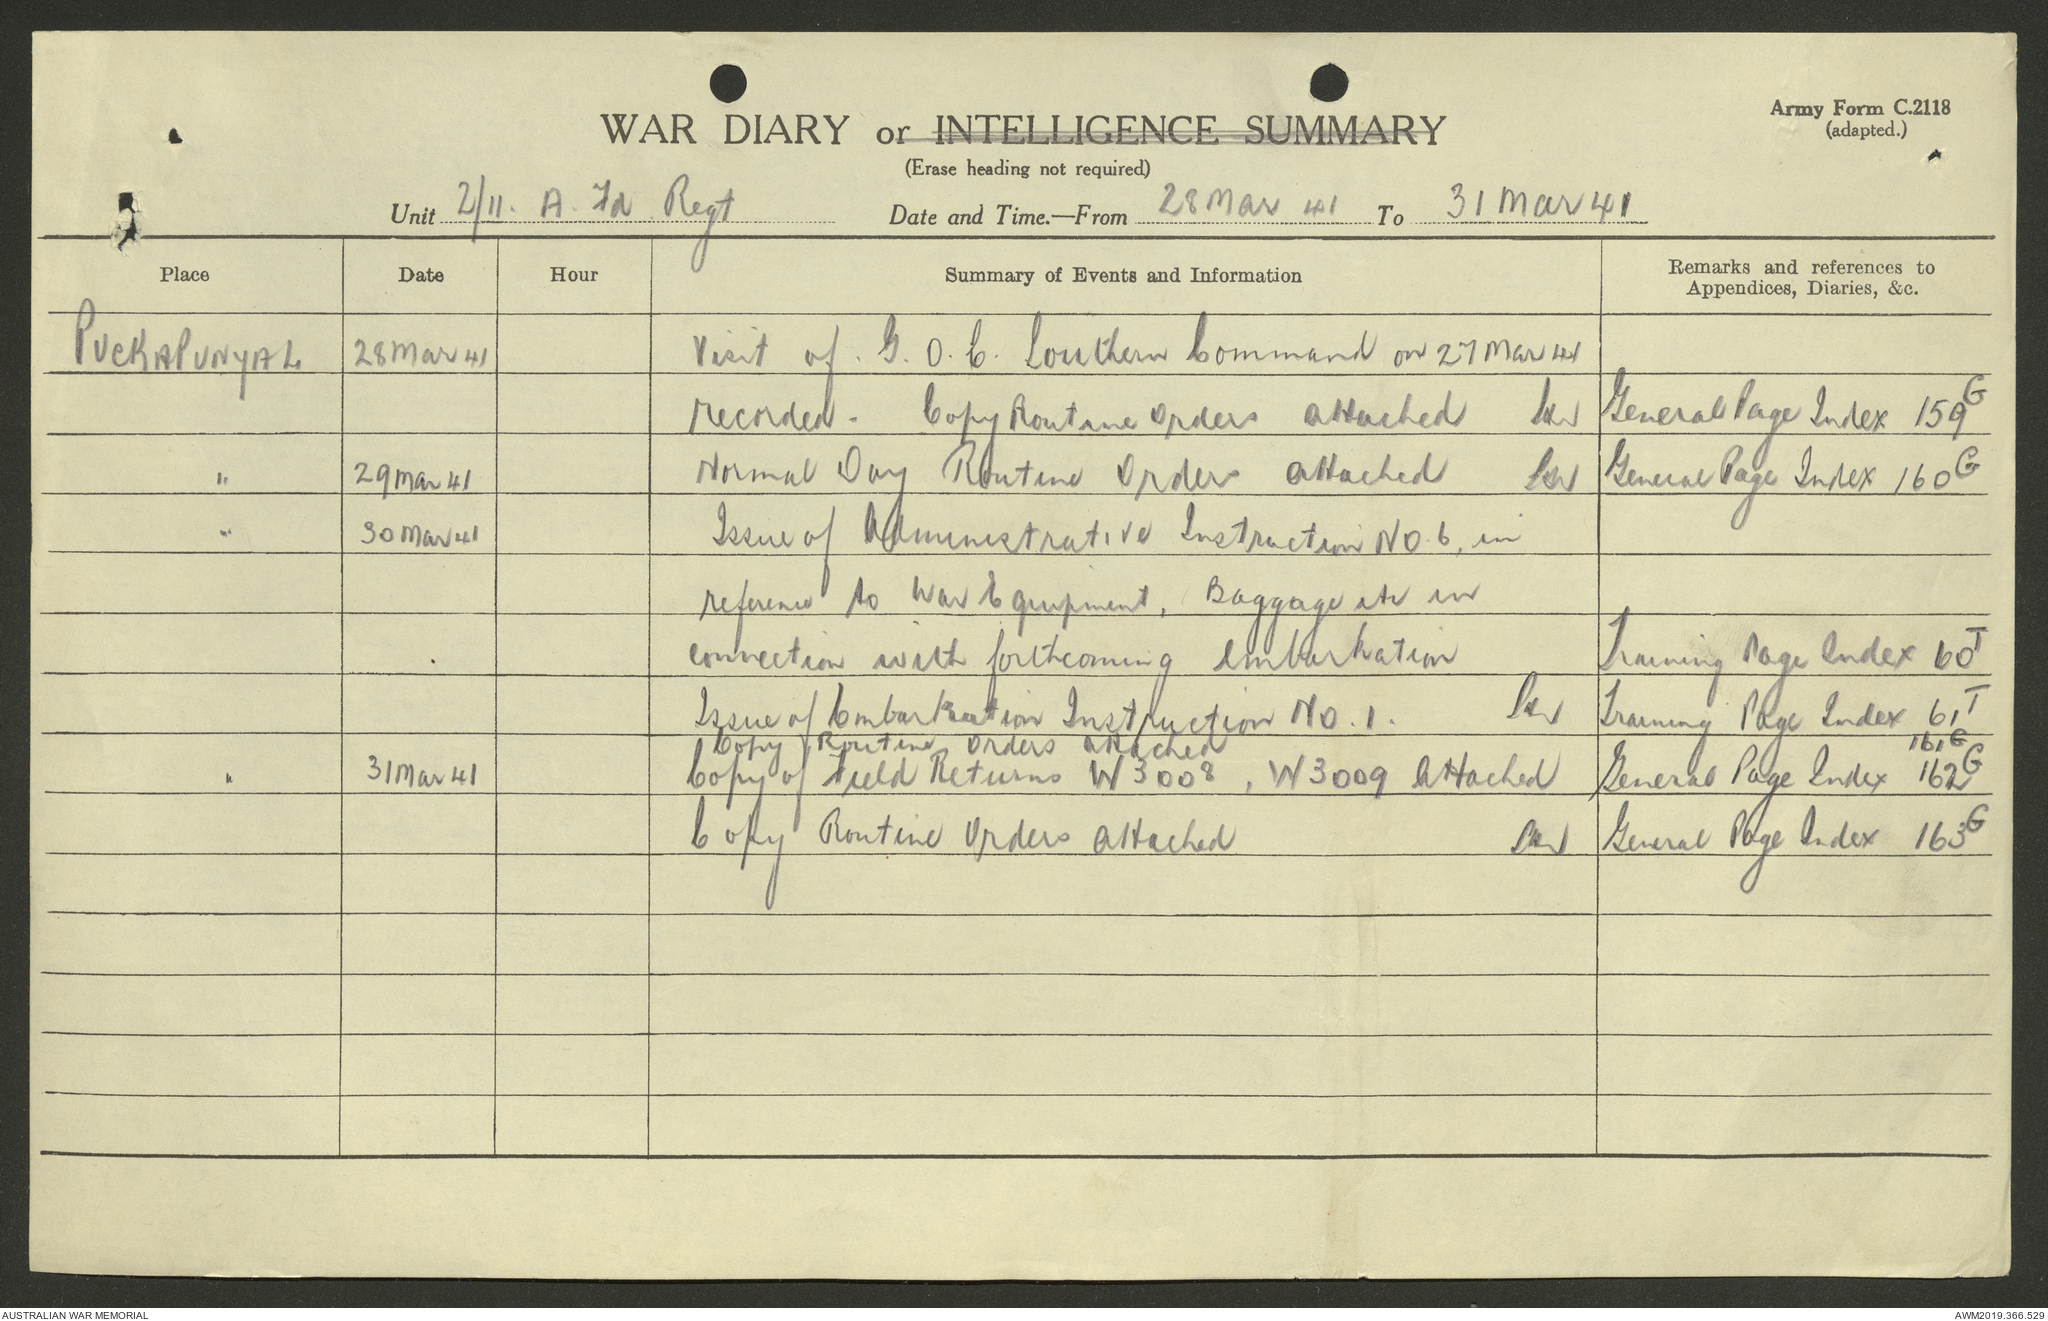 WAR DIARY or INTELLIGENCE SUMMARY
(Erase heading not required)
Army Form C.2118
(adapted.)
Unit 2/11. A. Fd Regt Date and Time.—From 28 Mar 41 To 31 Mar 41
Place Date Hour Summary of Events and Information Remarks and references to
Appendices, Diaries, &c.
PUCKAPUNYAL 28 Mar 41 Visit of. G. O. C. Southern Command on 27 Mar 41
recorded. Copy Routine Orders attached General Page Index 159G
" 29 Mar 41 Normal Day Routine Orders attached General Page Index 160G
" 30 Mar 41 Issue of Administrative Instruction No. 6, in
reference to War Equipment, Baggage etc in
connection with forthcoming embarkation Training Page Index 60T
Issue of Embarkation Instruction No. 1. Training Page Index 61T
Copy Routine Orders attached 161G
" 31 Mar 41 Copy of Field Returns W3008, W3009 attached General Page Index 162G
Copy Routine Orders attached General Page Index 163G
AUSTRALIAN WAR MEMORIAL AWM2019.366.529